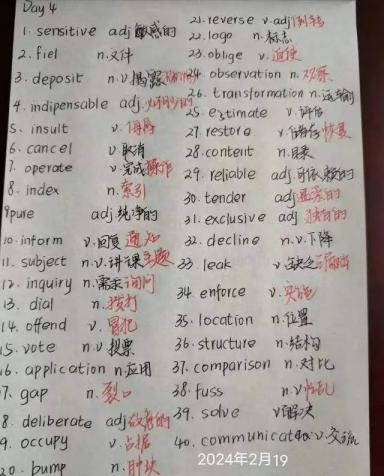 Day 4
1. sensitive adj 敏感的
2. fiel n. 文件
3. deposit n.v. 揭露
4. indipensable adj.
5. insult v. 侮辱
6. cancel v. 取消
7. operate v. 完成 操作
8. index n. 索引
9 pure adj 纯净的
10. inform v. 回复 通知
11. subject n.v. 讲课 主题
12. inquiry n. 需求 询问
13. dial n. 拨打
14. offend v. 冒犯
15. vote n.v 投票
16. application n. 应用
17. gap n. 裂口
18. deliberate adj 故意的
19. occupy v. 占据
20. bump n. 肿块
21. reverse v.adj 倒转
22. logo n. 标志
23. oblige v. 迫使
24. observation n. 观察
26. transformation n. 运输
25. estimate v. 评估
27. restore v. 储存 恢复
28. content n. 目录
29. reliable adj. 可依赖的
30. tender adj 温柔的
31. exclusive adj 独有的
32. decline n.v. 下降
33. leak v. 缺乏 泄漏
34. enforce v. 实施
35. location n. 位置
36. structure n. 结构
37. comparison n. 对比
38. fuss n.
39. solve v 解决
40. v. 交流
2024年2月19